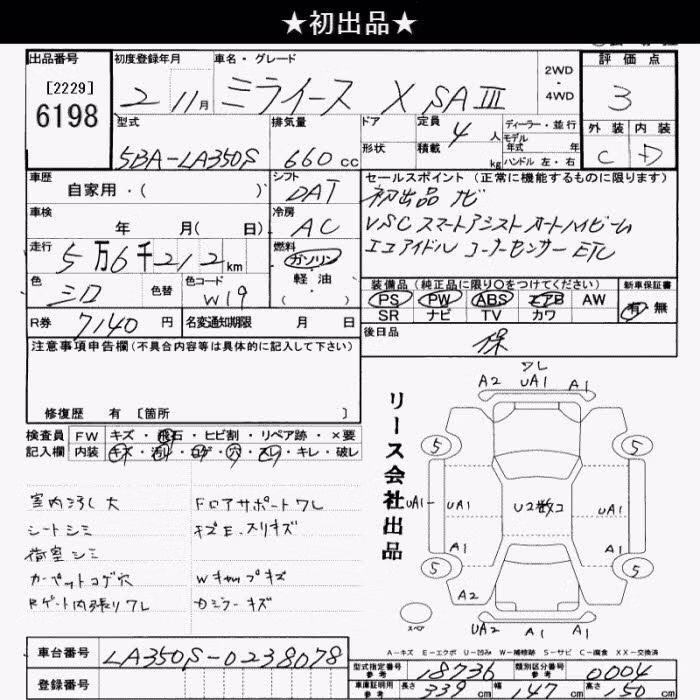 ★初出品★
出品番号 初度登録年月 車名・グレード 2WD・4WD 評価点
[2229]
6198 2 11月 ミライース X SAⅢ 3
型式 排気量 ドア 定員 4人 ディーラー・並行 外装 内装
5BA-LA350S 660cc 形状 積載 kg モデル年式 年 C D
ハンドル 左・右
車歴 シフト セールスポイント(正常に機能するものに限ります)
自家用・( ) DAT 初出品 ナビ
車検 冷房 VSC スマートアシスト オートハイビーム
年 月( 日) AC エコアイドル コーナーセンサー ETC
走行 燃料
5万6千212km ガソリン
軽油
・( )
色 色替 色コード 装備品(純正品に限り○をつけてください) 新車保証書
シロ W19 PS PW ABS エアB AW 有 無
SR ナビ TV カワ
R券 7140円 名変通知期限 月 日 後日品 保
注意事項申告欄(不具合内容等は具体的に記入して下さい)
修復歴 有 [箇所 ]
検査員 FW キズ・飛石・ヒビ割・リペア跡・×要
記入欄 内装 キズ・汚れ・コゲ・穴・スレ・キレ・破レ
室内ヨゴレ大 フロアサポートワレ
シートシミ キズE、スリキズ
荷室シミ
カーペットコゲ穴 Wキャップキズ
Rゲート内張りワレ Dミラーキズ
リース会社出品
ワレ
A2 UA1 A1
5 5
UA1 UA1 U2数コ UA1
A1 A1
5 5
A2
スペア UA2 A1 A1
A-キズ E-エクボ U-凹み W-補修跡 S-サビ C-腐食 XX-交換済
車台番号 LA350S-0238078 型式指定番号 参考 18736 類別区分番号 参考 0004
登録番号 車庫証明用 参考 長さ 339cm 幅 147cm 高さ 150cm